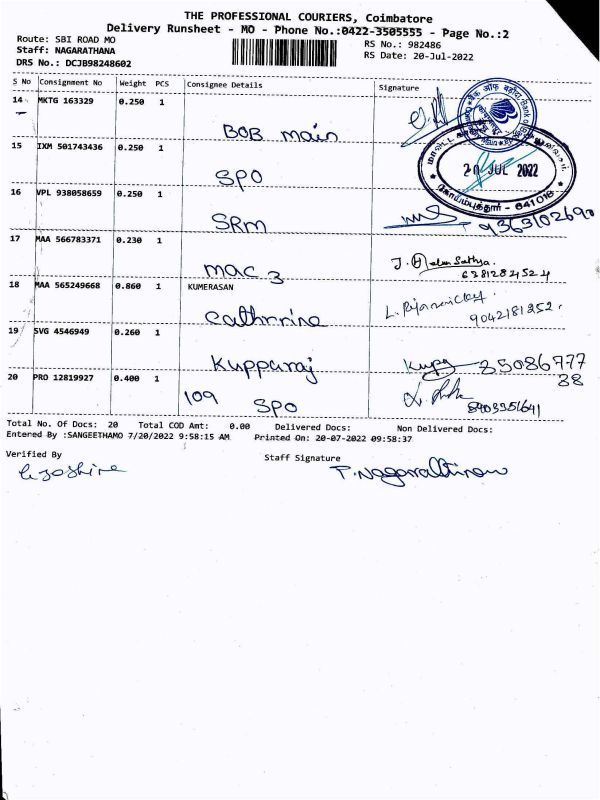 THE PROFESSIONAL COURIERS, Coimbatore
Delivery Runsheet - MO - Phone No.:0422-3505555 - Page No.:2
Route: SBI ROAD MO
RS No.: 982486
Staff: NAGARATHANA
RS Date: 20-Jul-2022
DRS No.: DCJB98248602
S No Consignment No Weight PCS Consignee Details Signature
14 MKTG 163329 0.250 1
BOB main
15 IXM 501743436 0.250 1
SPO
20 JUL 2022
கோயம்புத்தூர் - 641018
16 VPL 938058659 0.250 1
SRM
9363102690
17 MAA 566783371 0.230 1
mac 3
J. Helen Sathya
6381284524
18 MAA 565249668 0.860 1 KUMERASAN
Cathrrine
9042181252.
19 SVG 4546949 0.260 1
Kupparaj
85086777
38
20 PRO 12819927 0.400 1
109 SPO
8903351641
Total No. Of Docs: 20 Total COD Amt: 0.00 Delivered Docs: Non Delivered Docs:
Entered By :SANGEETHAMO 7/20/2022 9:58:15 AM Printed On: 20-07-2022 09:58:37
Verified By
Staff Signature